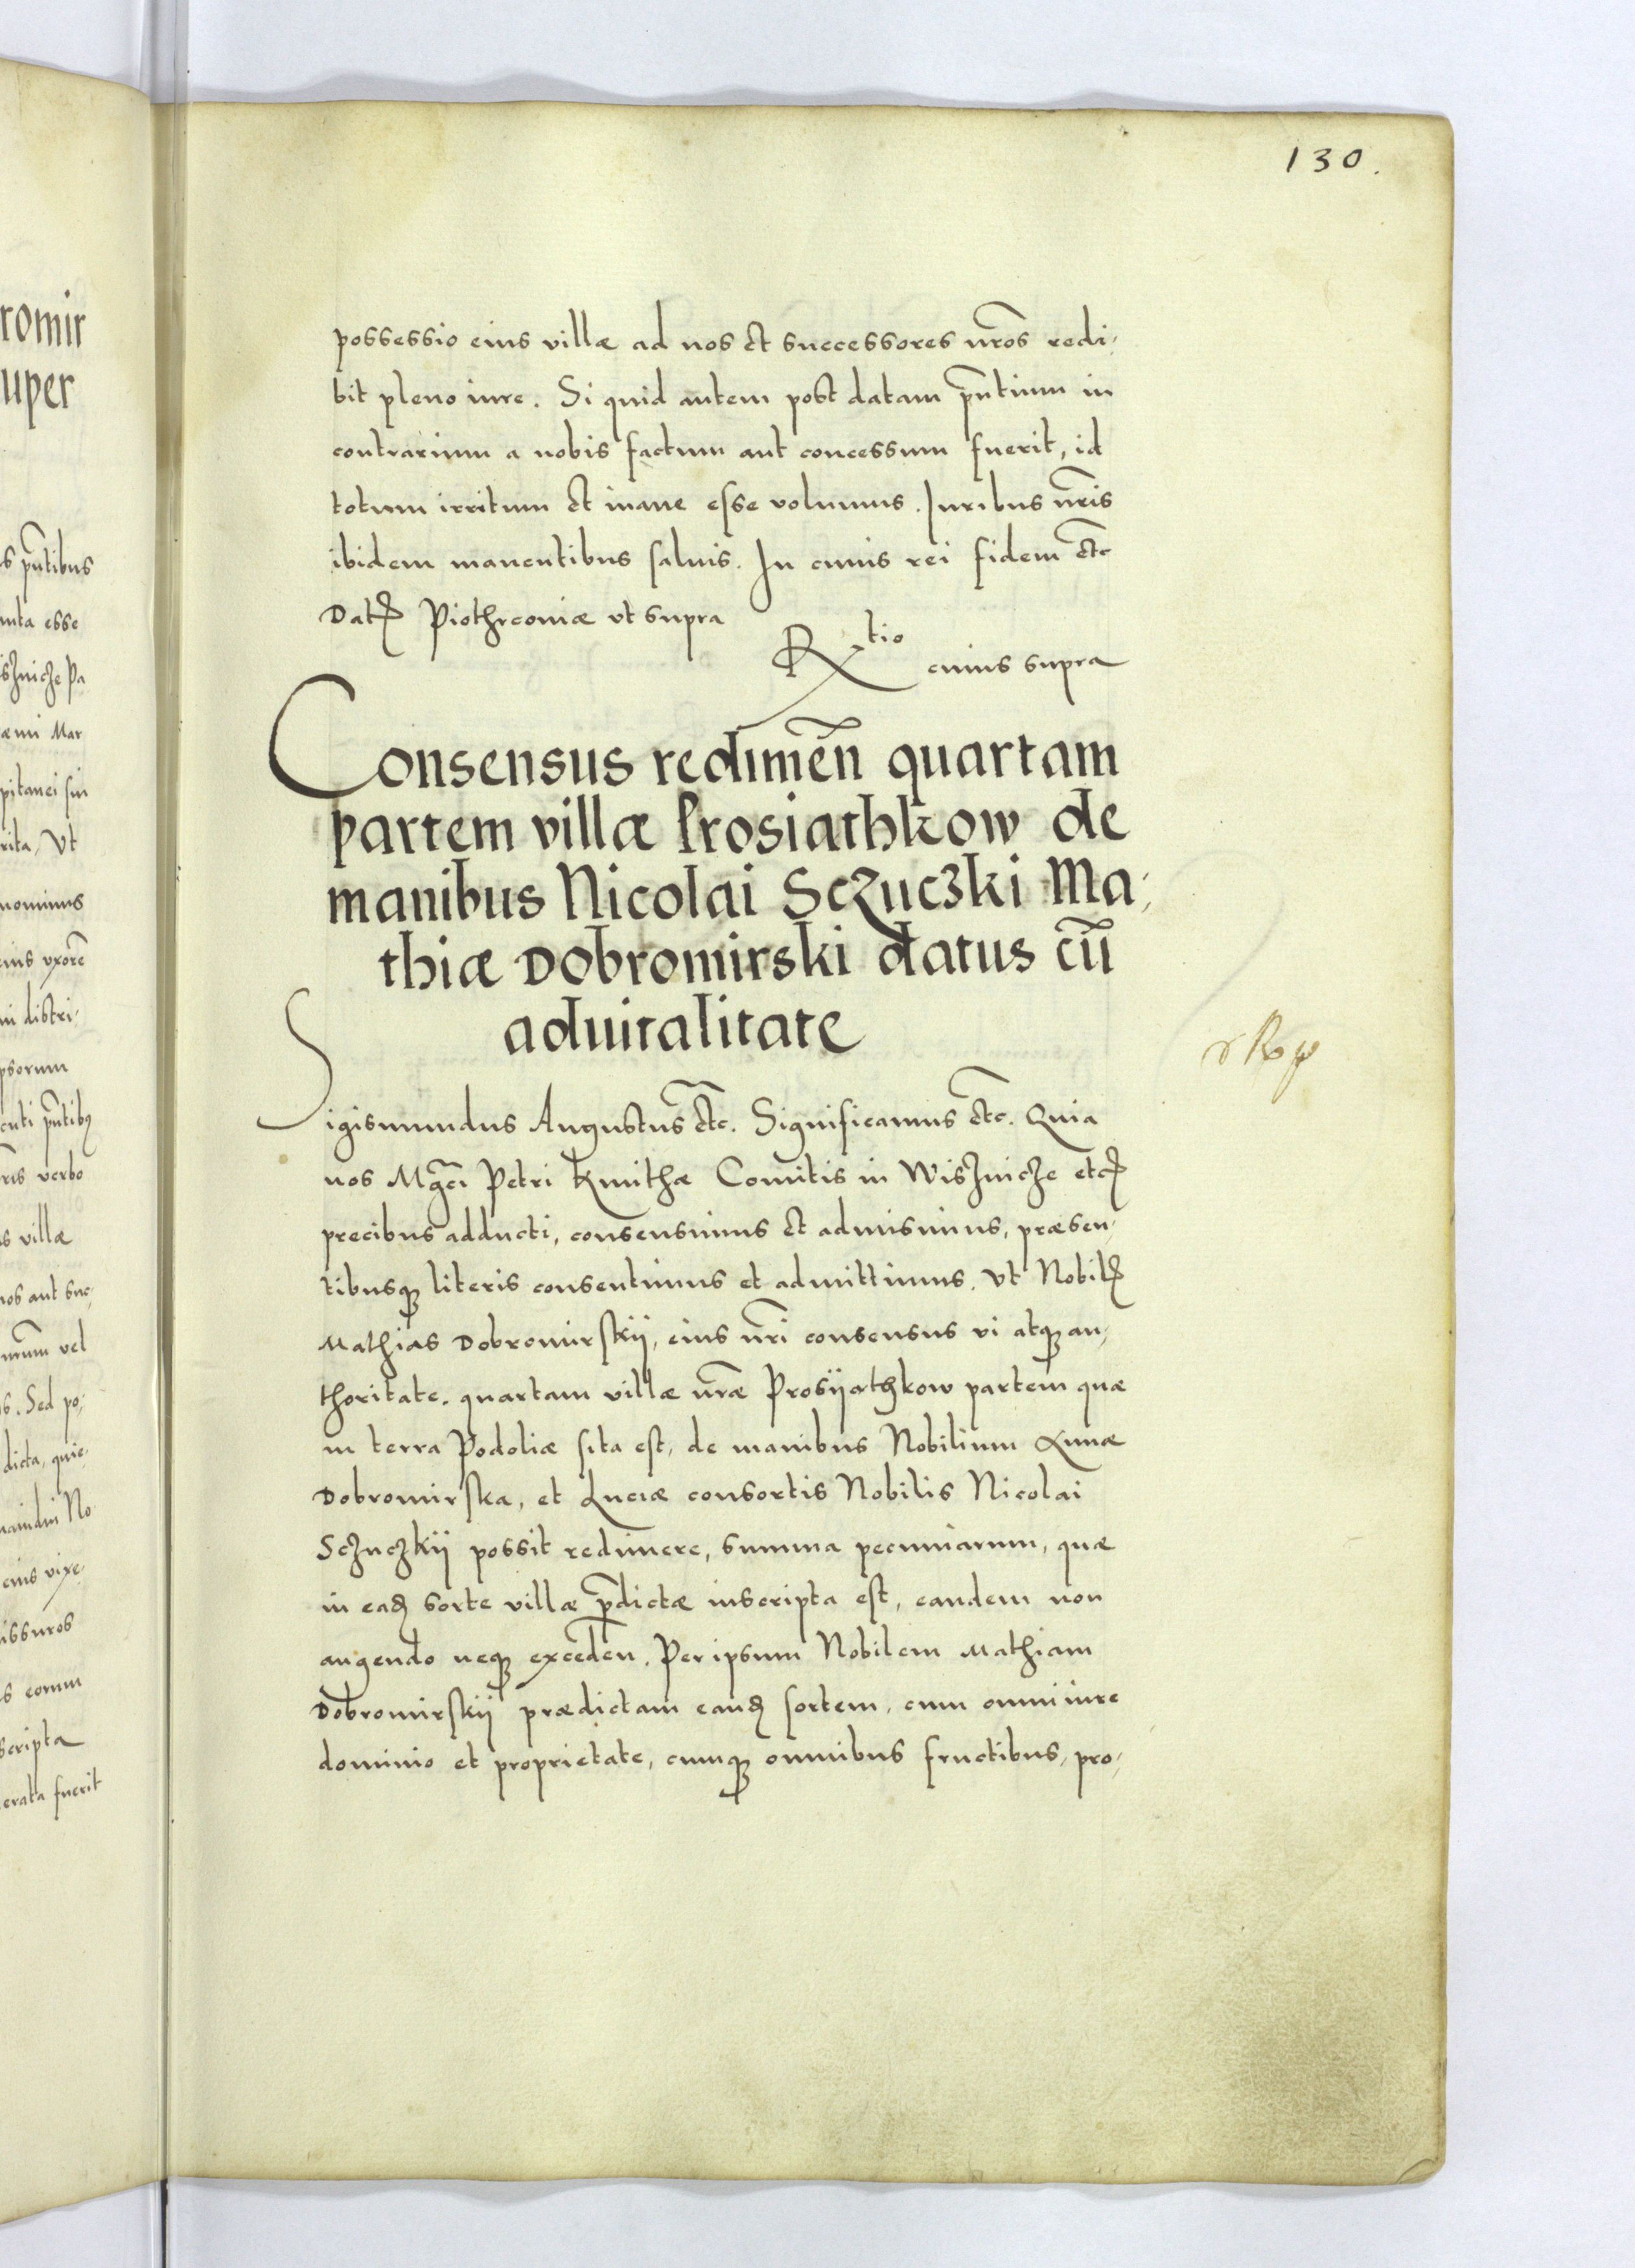 130.
possessio eius villæ ad nos et successores nr̃os redi,
bit pleno iure. Si quid autem post datam pn̄tium in
contrarium a nobis factum aut concessum fuerit, id
totum irritum et inane esse volumus. Iuribus nr̃is
ibidem manentibus saluis. In cuius rei fidem etc̃
Datꝭ Piothrcouiæ vt supra
Rtio cuius supra
Consensus redimen̄ quartam
partem villæ Prosiathkow de
manibus Nicolai Sczuczki Ma,
thiæ Dobromirski datus cū
aduitalitate
Sigismundus Augustus etc̃. Significamus etc̃. Quia
nos Mgc̃i Petri Kmithæ Comitis in Wisznicze etcꝭ
precibus adducti, consensimus et admisimus, præsen,
tibusqꝫ literis consentimus et admittimus. Vt Nobilꝭ
Mathias Dobromirskij, eius nr̃i consensus vi atqꝫ au,
thoritate. quartam villæ nr̃æ Prosijathkow partem quæ
in terra Podoliæ sita est, de manibus Nobilium Annæ
Dobromirska, et Luciæ consortis Nobilis Nicolai
Sczuczkij possit redimere, summa pecuniarum, quæ
in eadꝫ sorte villæ p̄dictæ inscripta est, eandem non
augendo neqꝫ exceden̄. Per ipsum Nobilem Mathiam
Dobromirskij prædictam eandꝫ sortem, cum omni iure
dominio et proprietate, cumqꝫ omnibus fructibus, pro,
romir
uper
s pn̄tibus
nta esse
isznicze Pa
æmi Mar
pitanei sui
rita, Vt
nominus
eius vxorē
ni distri,
psorum
enti pn̄tibꝰ
r̃is verbo
s villæ
nos aut suc,
vel
s. Sed po,
dicta, quie,
No
eius vixe,
issuros
s eorum
scripta
erata fuerit